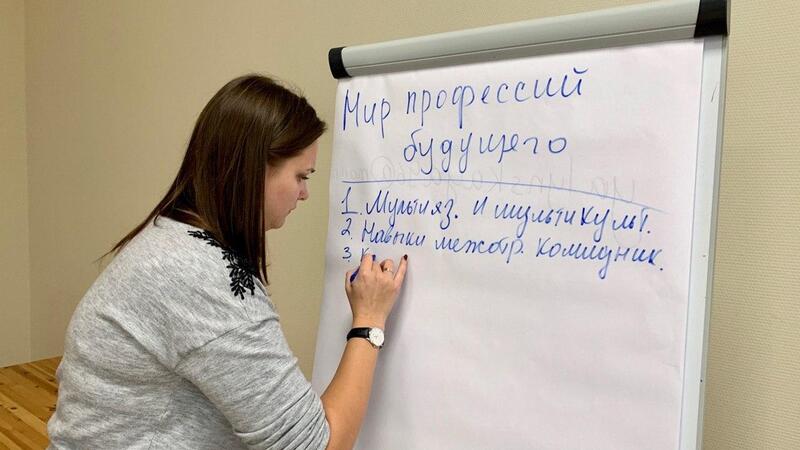 Мир профессий
будущего
1. Мультияз. и мультикульт.
2. Навыки межотр. коммуник.
3. К